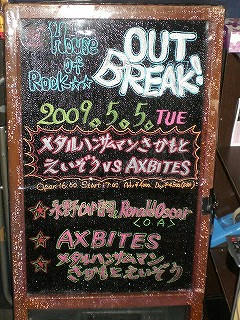 House of Rock☆☆
OUT BREAK!
2009.5.5. TUE
メタルハンサムマンさかもと
えいぞう VS AXBITES
Open 16:30 Start 17:00
☆ Ronald Oscar
<O.A>
☆ AXBITES
☆ メタルハンサムマン
さかもとえいぞう